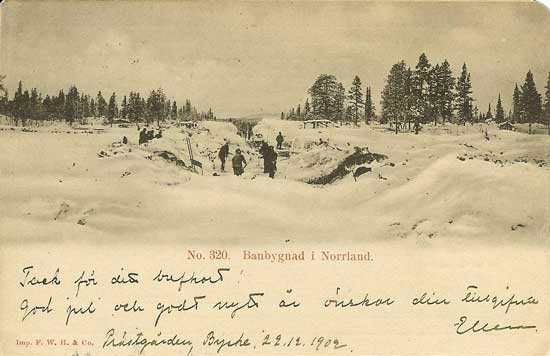 No. 320. Banbygnad i Norrland.
Tack för ditt brefkort!
God jul och godt nytt år önskar din tillgifna
Ellen
Imp. F. W. H. & Co. Prästgården, Byske, 22.12.1902